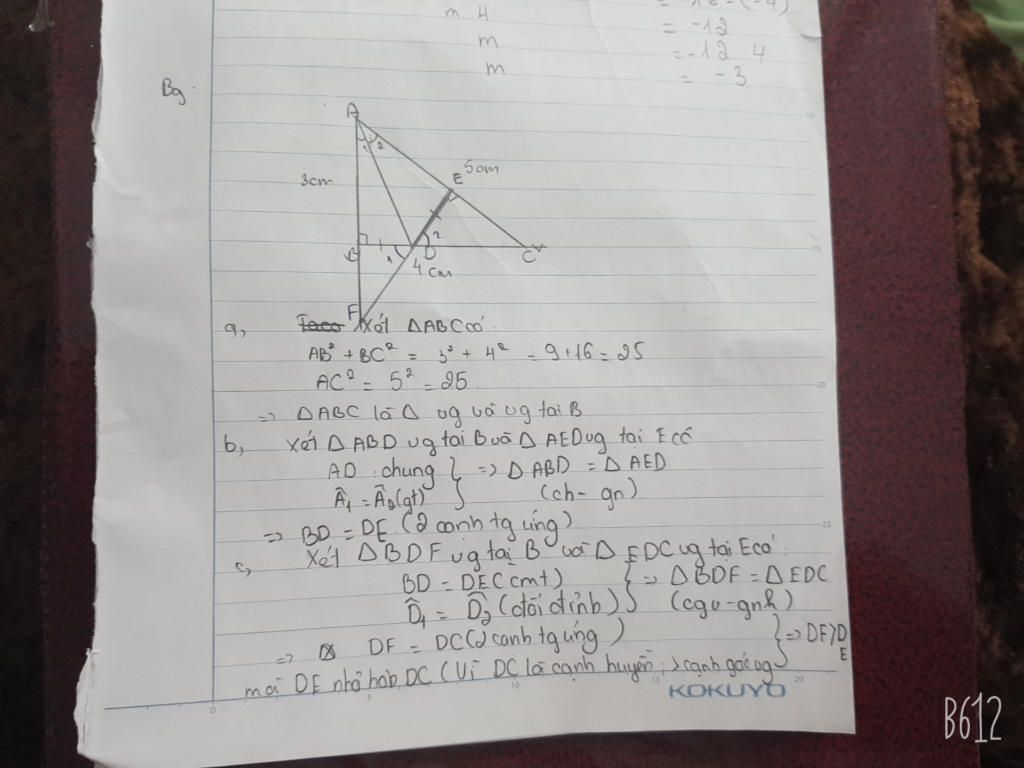 m. 4
= -12
m
= -12 4
m
= -3
Bg:
A
1 2
3cm
E 5cm
2
B
1
D
C
4 cm
F
a, Xét ΔABC có:
AB² + BC² = 3² + 4² = 9+16 = 25
AC² = 5² = 25
=> ΔABC là Δ vg và vg tại B
b, Xét ΔABD vg tại B và ΔAED vg tại E có
AD : chung } => ΔABD = ΔAED
Â₁ = Â₂ (gt) (ch - gn)
=> BD = DE (2 cạnh tg ứng)
c, Xét ΔBDF vg tại B và Δ EDC vg tại E có:
BD = DE (cmt) } => ΔBDF = ΔEDC
D̂₁ = D̂₂ (đối đỉnh) (cgv - gnk)
=> DF = DC (2 cạnh tg ứng) } => DF>D
E
mà DE nhỏ hơn DC (Vì DC là cạnh huyền > cạnh góc vg
KOKUYO
B612